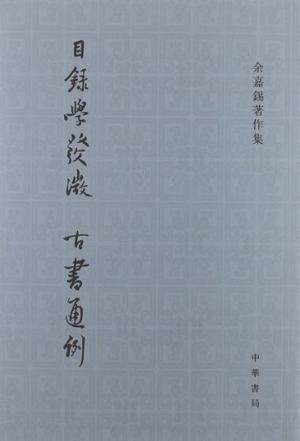 余嘉錫著作集
目録學發微 古書通例
中華書局